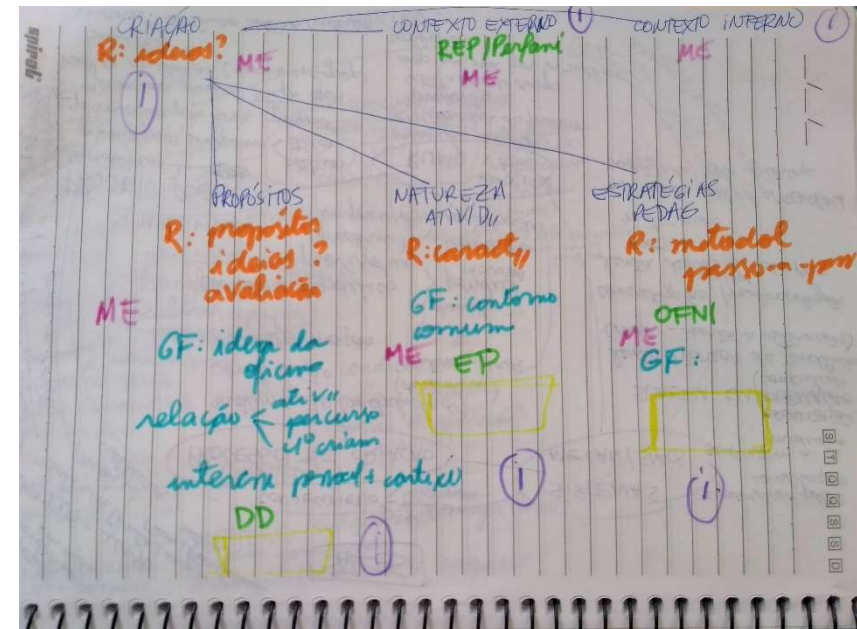 spiral
CRIAÇÃO
R: ideias?
ME
i
CONTEXTO EXTERNO i
REP/Perfani
ME
CONTEXTO INTERNO i
ME
__/__/__
PROPÓSITOS
R: propósitos
ideias ?
avaliação
ME
GF: ideia da
oficina
relação < ativ//
percurso
criam
interesse pessoal + contexto
DD
i
NATUREZA
ATIVID//
R: caract//
GF: contorno
comum
ME
EP
i
ESTRATÉGIAS
PEDAG
R: metodol
passo-a-pass
OFNI
ME
GF:
i
S T Q Q S S D